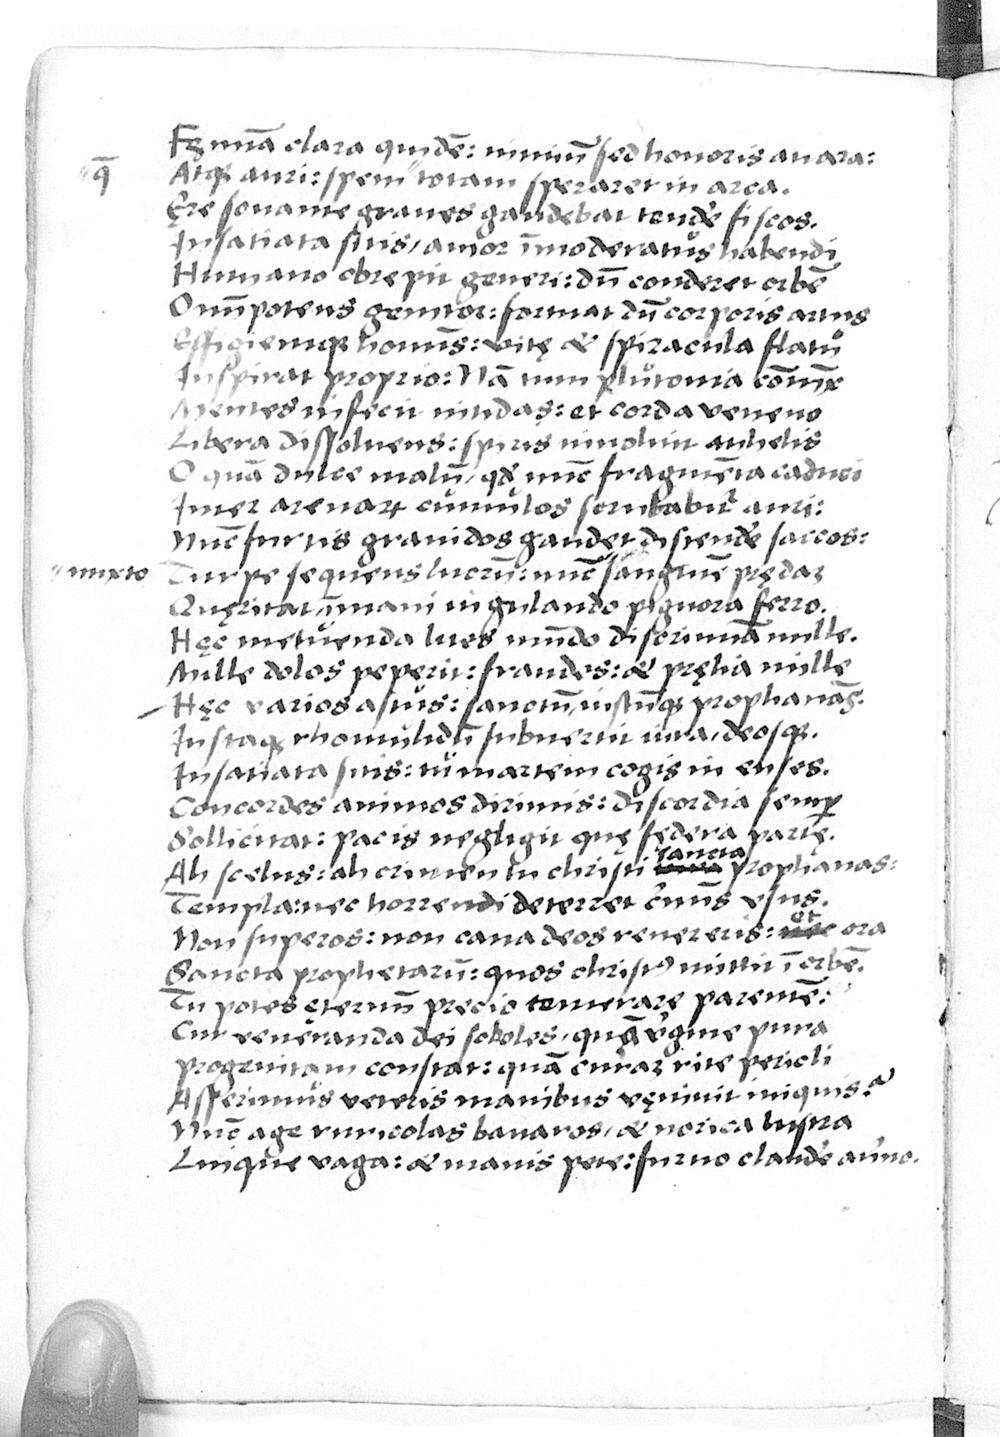 Fęmīa clara quidē: nimiū sed honoris auara:
"q̄ Atqꝫ auri: spem" totam speraret in arca.
Ęre sonante graues gaudebat tendē̓ fiscos.
Insatiata sitis, amor īmoderatus habendi
Humano obrepit generi: dū conderet orbē
Omīpotens genitor: format dū corporis artus
Effigiemqꝫ homīs: vitę & spiracula flatu
Inspirat proprio: Nā tum plutonia cōiūx
Mentes infecit nitidas: et corda veneno
Libera dissoluens: spiris inuoluit anhelis
O quā dulce malū, qđ nūc fragmēta caduci
Inter arenarꝝ cumulos scrutabit᷑ auri:
Nūc furtis grauidos gaudet distendē̓ saccos:
"mixto Turpe sequens lucrū: nūc" sanguinē prędaꝫ
Quęritat, īmani iugulando pignora ferro.
Hęc metuenda lues mūdo discrimīa mille.
Mille dolos peperit: fraudes: & pręlia mille
Hęc varios astus: sanctū, iustūqꝫ prophanās.
Iustaqꝫ rhomulidū subuertit iura, deosqꝫ.
Insatiata sitis: tu martem cogis in enses.
Concordes animos dirimis: discordia semꝑ
Sollicitat: pacis negligit quę fędera partę.
Ah scelus: ah crimen tu christi sancta prophanas:
Templa: nec horrendi deterret c̓mīs vsus.
Non superos: non cana deos revereris: et ora
Sancta prophetarū: quos christꝰ mittit ī orbē.
Tu potes ęternū precio temerare parentē:
Cur veneranda dei soboles, quā v̓gine pura
progenitam constat: quā curaꝫ rite pericli
Asserimus veteris manibus vęniuit iniquis?
Nūc age ruricolas bauaros, & norica lustra
Linque vaga: & manis pete: furno claudē̓ auīno.